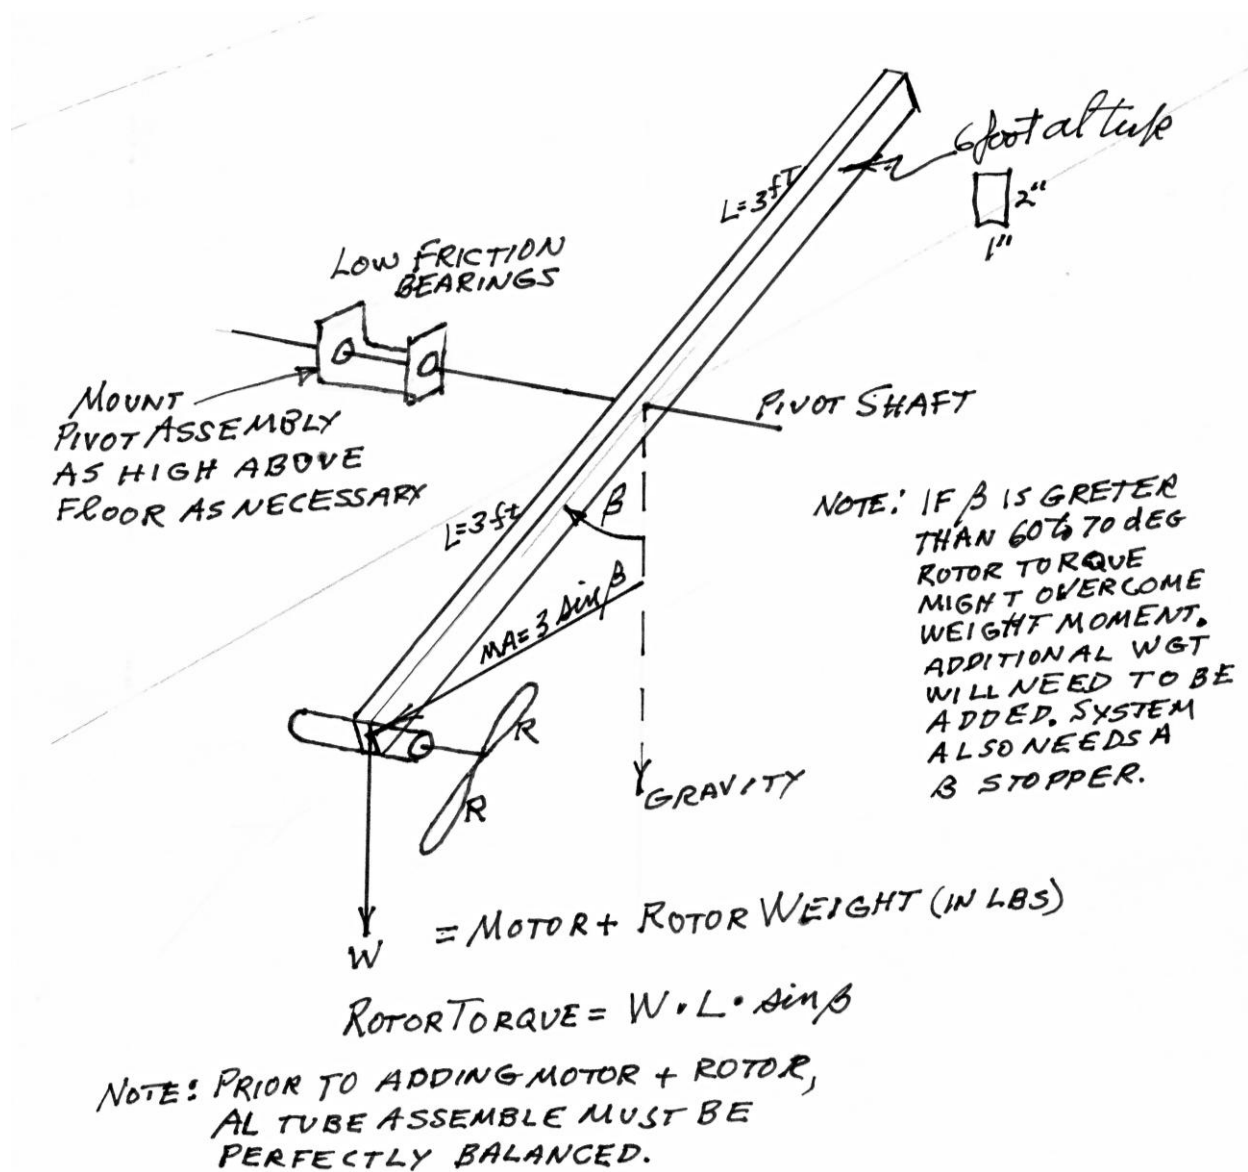 6 foot al tube
2"
1"
L=3 ft
LOW FRICTION
BEARINGS
MOUNT
PIVOT ASSEMBLY
AS HIGH ABOVE
FLOOR AS NECESSARY
PIVOT SHAFT
L=3 ft
β
MA=3 sin β
NOTE: IF β IS GRETER
THAN 60 to 70 dEG
ROTOR TORQUE
MIGHT OVERCOME
WEIGHT MOMENT.
ADDITIONAL WGT
WILL NEED TO BE
ADDED. SYSTEM
ALSO NEEDS A
β STOPPER.
R
R
GRAVITY
W = MOTOR + ROTOR WEIGHT (IN LBS)
ROTOR TORQUE = W · L · sin β
NOTE: PRIOR TO ADDING MOTOR + ROTOR,
AL TUBE ASSEMBLE MUST BE
PERFECTLY BALANCED.